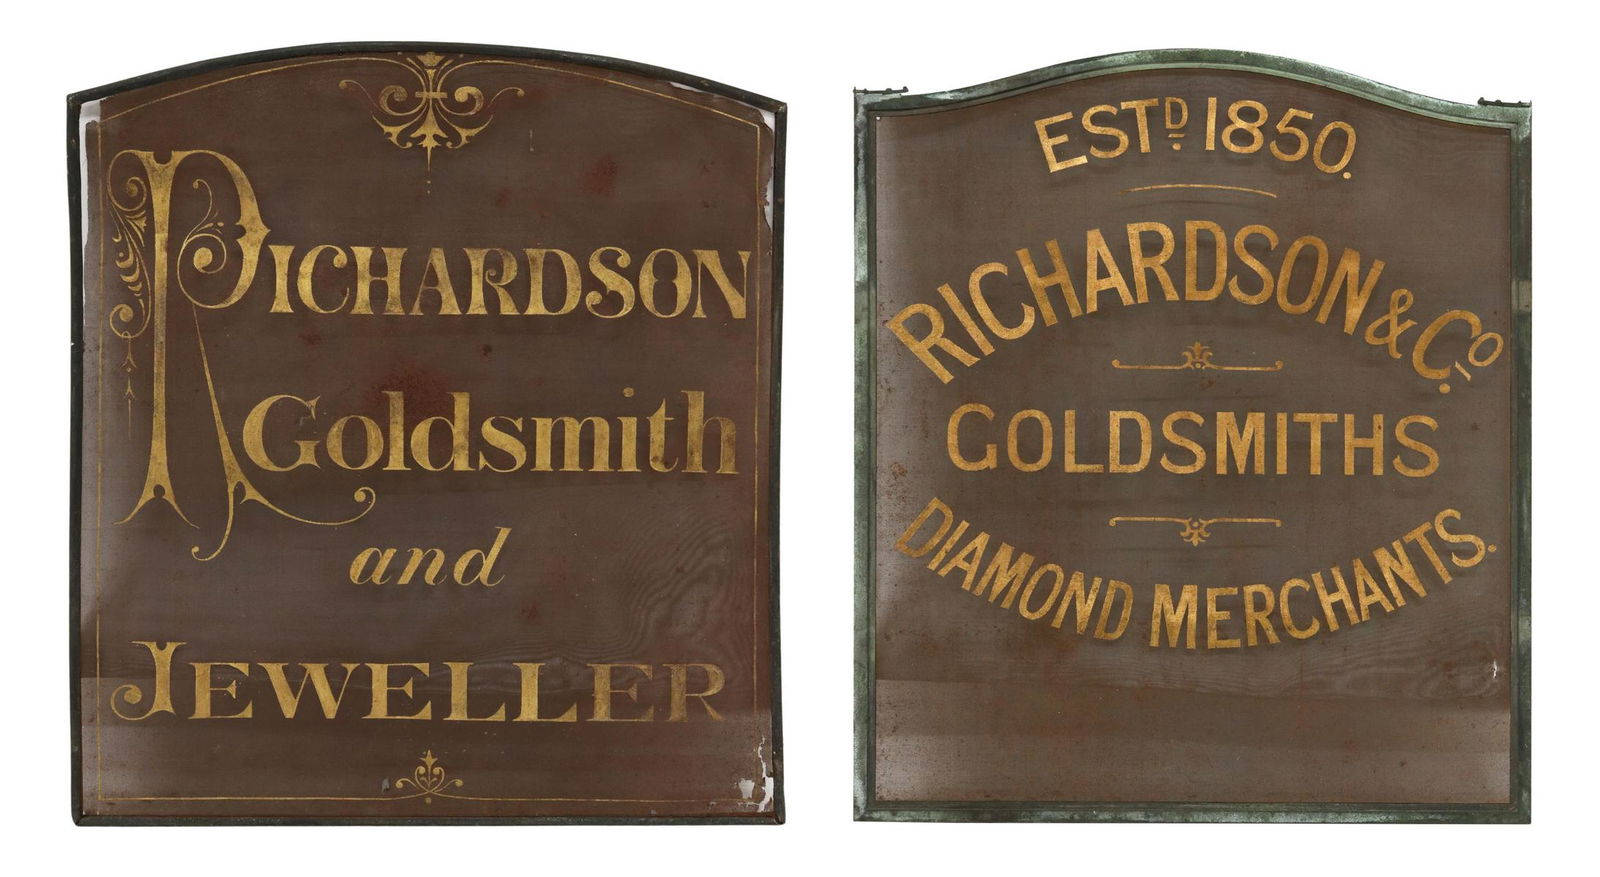 RICHARDSON
Goldsmith
and
JEWELLER
ESTD 1850.
RICHARDSON & Co,
GOLDSMITHS
DIAMOND MERCHANTS.